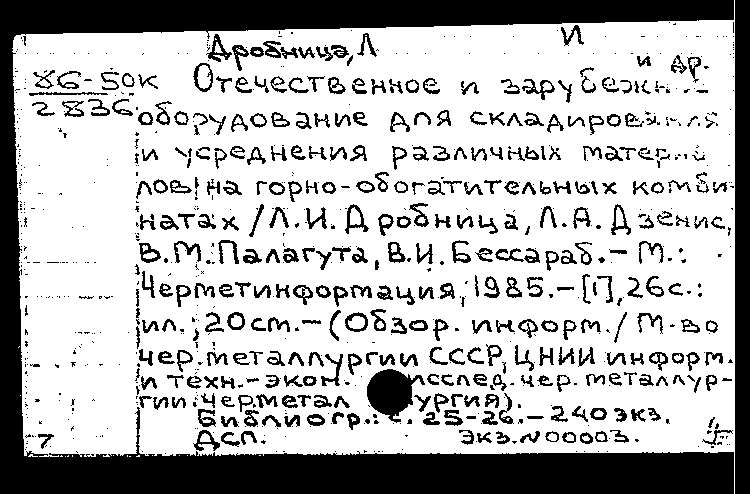 Дробница, Л И
и др.
86-50к Отечественное и зарубежн
2836 оборудование для складирования
и усреднения различных матери
лов на горно-обогатительных комби-
натах / Л.И. Дробница, Л.А. Дзенис,
В.М. Палагута, В.И. Бессараб. – М.:
Черметинформация, 1985. – [1], 26с.:
ил.; 20см. – (Обзор. информ. / М-во
чер. металлургии СССР, ЦНИИ информ.
и техн.-экон. исслед. чер. металлур-
гии. Черметал ургия).
Библиогр.: с. 25-26. – 240 экз.
7 ДСП. Экз. N 00003.